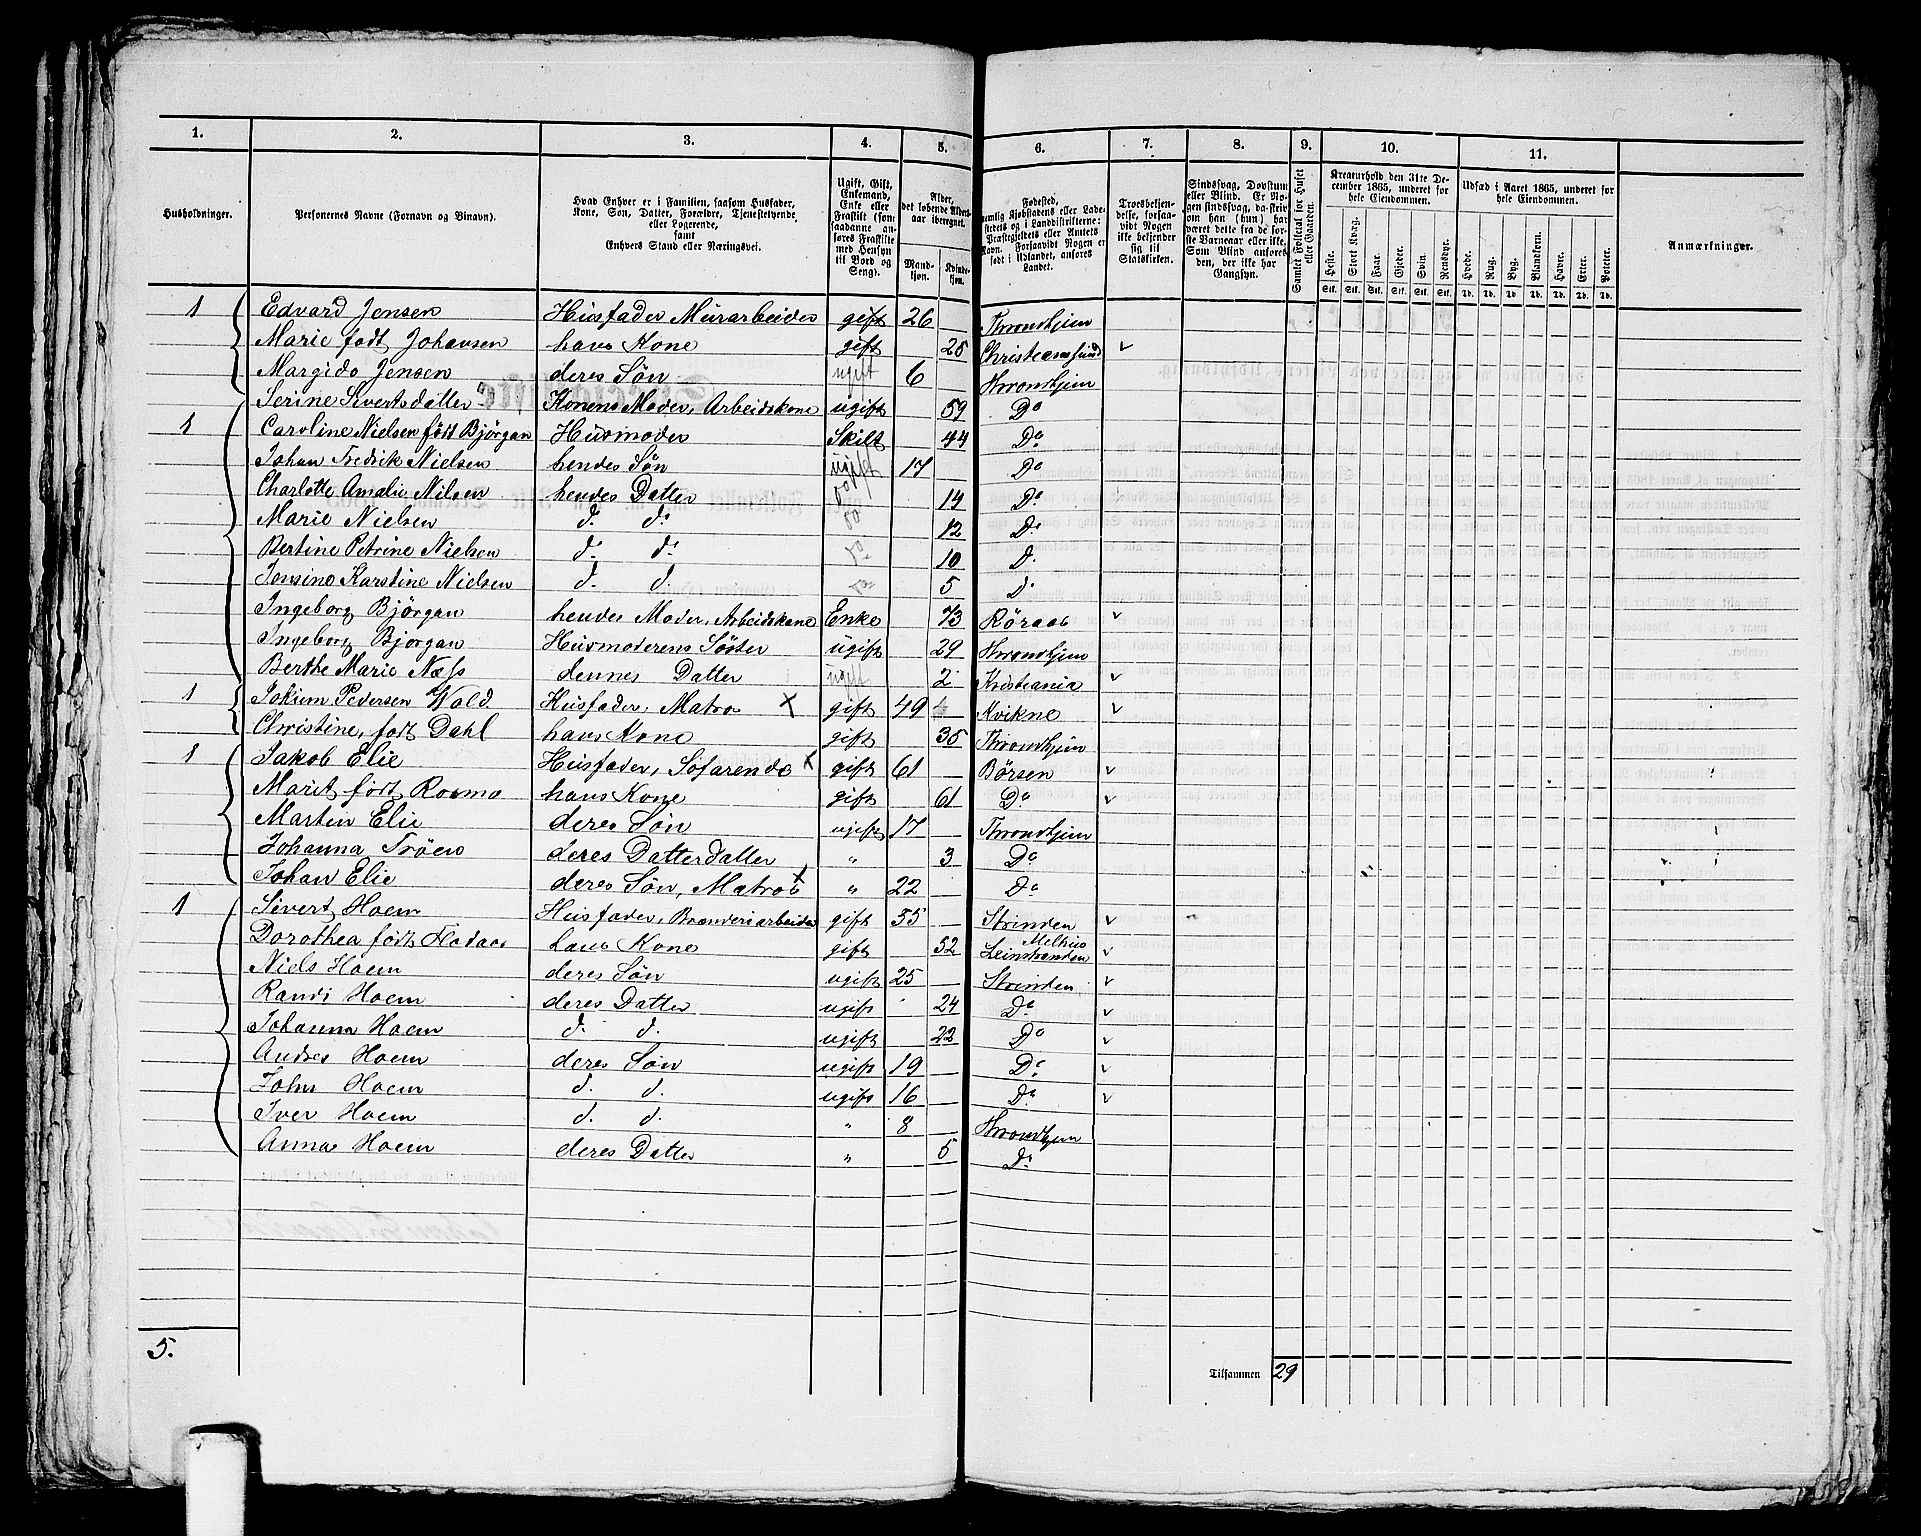 1. 2. 3. 4. 5. 6. 7. 8. 9. 10. 11.
Husholdninger. Personernes Navne (Fornavn og Binavn). Hvad Enhver er i Familien, saasom Husfader, Kone, Søn, Datter, Forældre, Tjenestetyende eller Logerende, samt Enhvers Stand eller Næringsvei. Ugift, Gift, Enkemand, Enke eller Fraskilt (som saadanne anføres Fraskilte med Hensyn til Bord og Seng). Alder, det løbende Alders-aar iberegnet. Mandkjøn. Kvindekjøn. Fødested, Troesbekjendelse, forsaavidt Nogen ikke bekjender sig til Statskirken. Sindssvag, Døvstum eller Blind. Samlet Folketal for Huset eller Gaarden. Kreaturhold den 31te December 1865, underet for hele Eiendommen. Udsæd i Aaret 1865, underet for hele Eiendommen. Anmærkninger.
Heste. Stort Kvæg. Faar. Gjeder. Svin. Rensdyr. Hvede. Rug. Byg. Blandkorn. Havre. Erter. Poteter.
1 Edvard Jensen Husfader Murarbeider gift 26 Throndhjem
Marie født Johansen hans Kone gift 25 Christianssund v
Margido Jensen deres Søn ugift 6 Throndhjem
Serine Sivertsdatter Konens Moder, Arbeidskone ugift 59 Do
1 Caroline Nielsen født Bjørgan Husmoder Skilt 44 Do
Johan Fredrik Nielsen hendes Søn ugift 17 Do
Charlotte Amalie Nilsen hendes Datter do 14 Do
Marie Nielsen d. d. do 12 Do
Bertine Petrine Nielsen d. d. do 10 D.
Jensine Karstine Nielsen d. d. do 5 d.
Ingeborg Bjørgan hendes Moder, Arbeidskone Enke 73 Røraas v
Ingeborg Bjørgan Husmoderens Søster ugift 29 Throndhjem
Berthe Marie Næss dennes Datter ugift 2 Kristiania v
1 Jokum Pedersen Wold Husfader, Matros X gift 49 Kvikne v
Christine, født Dahl hans Kone gift 35 Throndhjem
1 Jakob Elie Husfader, Søfarende X gift 61 Børsen v
Marit født Rosmo hans Kone gift 61 Do v
Martin Elie deres Søn ugift 17 Throndhjem
Johanna Trøen deres Datterdatter " 3 Do
Johan Elie deres Søn, Matros X " 22 Do
1 Sivert Hoem Husfader, Brænderiarbeider gift 55 Strinden v
Dorothea født Flodaas hans Kone gift 52 Leinstranden Melhus v
Niels Hoem deres Søn ugift 25 Strinden v
Randi Hoem deres Datter ugift 24 Do v
Johanna Hoem d. d. ugift 22 Do v
Andres Hoem deres Søn ugift 19 Do v
John Hoem d. d. ugift 16 Do v
Iver Hoem d. d. " 8 Throndhjem
Anna Hoem deres Datter " 5 Do
5. Tilsammen 29